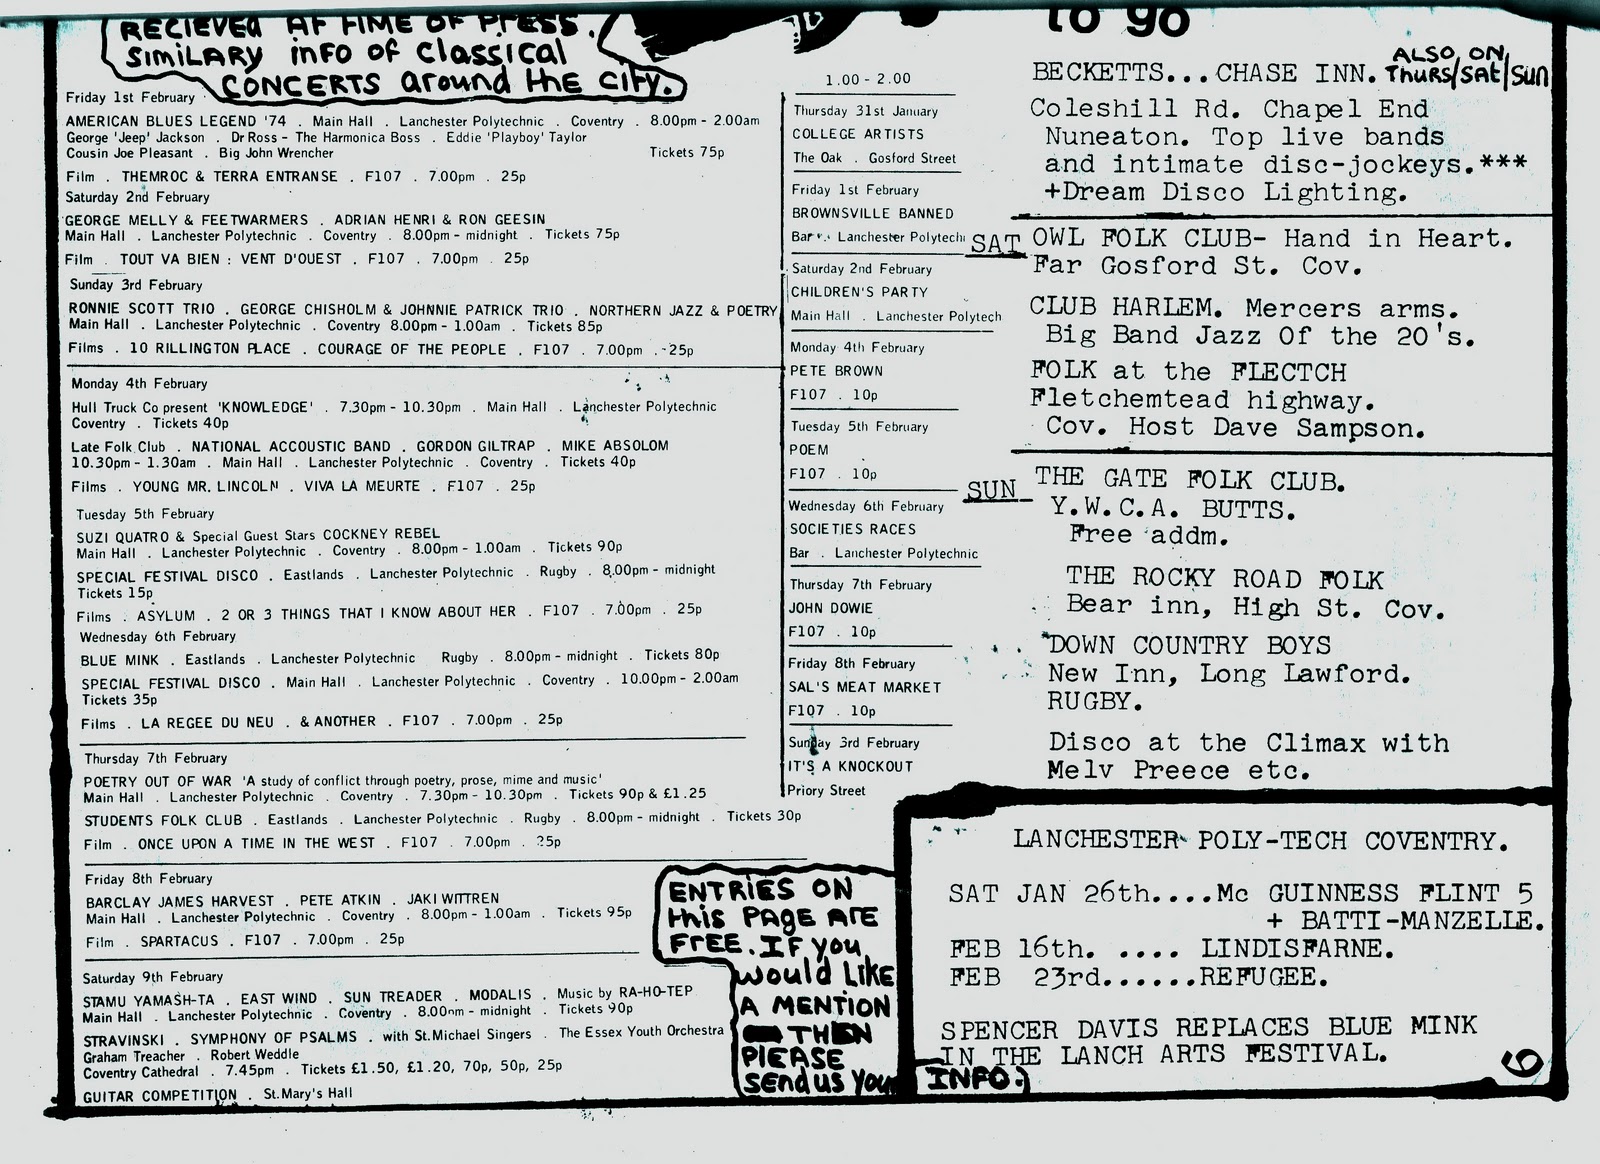 RECIEVED AT TIME OF PRESS.
SIMILARY INFO OF CLASSICAL
CONCERTS around the CITY.
Friday 1st February
AMERICAN BLUES LEGEND '74 . Main Hall . Lanchester Polytechnic . Coventry . 8.00pm - 2.00am
George 'Jeep' Jackson . Dr Ross - The Harmonica Boss . Eddie 'Playboy' Taylor
Cousin Joe Pleasant . Big John Wrencher Tickets 75p
Film . THEMROC & TERRA ENTRANSE . F107 . 7.00pm . 25p
Saturday 2nd February
GEORGE MELLY & FEETWARMERS . ADRIAN HENRI & RON GEESIN
Main Hall . Lanchester Polytechnic . Coventry . 8.00pm - midnight . Tickets 75p
Film . TOUT VA BIEN : VENT D'OUEST . F107 . 7.00pm . 25p
Sunday 3rd February
RONNIE SCOTT TRIO . GEORGE CHISHOLM & JOHNNIE PATRICK TRIO . NORTHERN JAZZ & POETRY
Main Hall . Lanchester Polytechnic . Coventry 8.00pm - 1.00am . Tickets 85p
Films . 10 RILLINGTON PLACE . COURAGE OF THE PEOPLE . F107 . 7.00pm . 25p
Monday 4th February
Hull Truck Co present 'KNOWLEDGE' . 7.30pm - 10.30pm . Main Hall . Lanchester Polytechnic
Coventry . Tickets 40p
Late Folk Club . NATIONAL ACCOUSTIC BAND . GORDON GILTRAP . MIKE ABSOLOM
10.30pm - 1.30am . Main Hall . Lanchester Polytechnic . Coventry . Tickets 40p
Films . YOUNG MR. LINCOLN . VIVA LA MEURTE . F107 . 25p
Tuesday 5th February
SUZI QUATRO & Special Guest Stars COCKNEY REBEL
Main Hall . Lanchester Polytechnic . Coventry . 8.00pm - 1.00am . Tickets 90p
SPECIAL FESTIVAL DISCO . Eastlands . Lanchester Polytechnic . Rugby . 8.00pm - midnight
Tickets 15p
Films . ASYLUM . 2 OR 3 THINGS THAT I KNOW ABOUT HER . F107 . 7.00pm . 25p
Wednesday 6th February
BLUE MINK . Eastlands . Lanchester Polytechnic Rugby . 8.00pm - midnight . Tickets 80p
SPECIAL FESTIVAL DISCO . Main Hall . Lanchester Polytechnic . Coventry . 10.00pm - 2.00am
Tickets 35p
Films . LA REGEE DU NEU . & ANOTHER . F107 . 7.00pm . 25p
Thursday 7th February
POETRY OUT OF WAR 'A study of conflict through poetry, prose, mime and music'
Main Hall . Lanchester Polytechnic . Coventry . 7.30pm - 10.30pm . Tickets 90p & £1.25
STUDENTS FOLK CLUB . Eastlands . Lanchester Polytechnic . Rugby . 8.00pm - midnight . Tickets 30p
Film . ONCE UPON A TIME IN THE WEST . F107 . 7.00pm . 25p
Friday 8th February
BARCLAY JAMES HARVEST . PETE ATKIN . JAKI WITTREN
Main Hall . Lanchester Polytechnic . Coventry . 8.00pm - 1.00am . Tickets 95p
Film . SPARTACUS . F107 . 7.00pm . 25p
Saturday 9th February
STAMU YAMASH-TA . EAST WIND . SUN TREADER . MODALIS . Music by RA-HO-TEP
Main Hall . Lanchester Polytechnic . Coventry . 8.00pm - midnight . Tickets 90p
STRAVINSKI . SYMPHONY OF PSALMS . with St.Michael Singers . The Essex Youth Orchestra
Graham Treacher . Robert Weddle
Coventry Cathedral . 7.45pm . Tickets £1.50, £1.20, 70p, 50p, 25p
GUITAR COMPETITION . St.Mary's Hall
1.00 - 2.00
Thursday 31st January
COLLEGE ARTISTS
The Oak . Gosford Street
Friday 1st February
BROWNSVILLE BANNED
Bar . Lanchester Polytech
Saturday 2nd February
CHILDREN'S PARTY
Main Hall . Lanchester Polytech
Monday 4th February
PETE BROWN
F107 . 10p
Tuesday 5th February
POEM
F107 . 10p
Wednesday 6th February
SOCIETIES RACES
Bar . Lanchester Polytechnic
Thursday 7th February
JOHN DOWIE
F107 . 10p
Friday 8th February
SAL'S MEAT MARKET
F107 . 10p
Sunday 3rd February
IT'S A KNOCKOUT
Priory Street
ENTRIES ON
this PAGE ARE
FREE. IF you
would LIKE
A MENTION
THEN
PLEASE
send us your
INFO.
to go
BECKETTS...CHASE INN. ALSO ON THURS/SAT/SUN
Coleshill Rd. Chapel End
Nuneaton. Top live bands
and intimate disc-jockeys.***
+Dream Disco Lighting.
SAT OWL FOLK CLUB- Hand in Heart.
Far Gosford St. Cov.
CLUB HARLEM. Mercers arms.
Big Band Jazz Of the 20's.
FOLK at the FLECTCH
Fletchemtead highway.
Cov. Host Dave Sampson.
SUN THE GATE FOLK CLUB.
Y.W.C.A. BUTTS.
Free addm.
THE ROCKY ROAD FOLK
Bear inn, High St. Cov.
DOWN COUNTRY BOYS
New Inn, Long Lawford.
RUGBY.
Disco at the Climax with
Melv Preece etc.
LANCHESTER POLY-TECH COVENTRY.
SAT JAN 26th....Mc GUINNESS FLINT 5
+ BATTI-MANZELLE.
FEB 16th. .... LINDISFARNE.
FEB 23rd......REFUGEE.
SPENCER DAVIS REPLACES BLUE MINK
IN THE LANCH ARTS FESTIVAL.
6